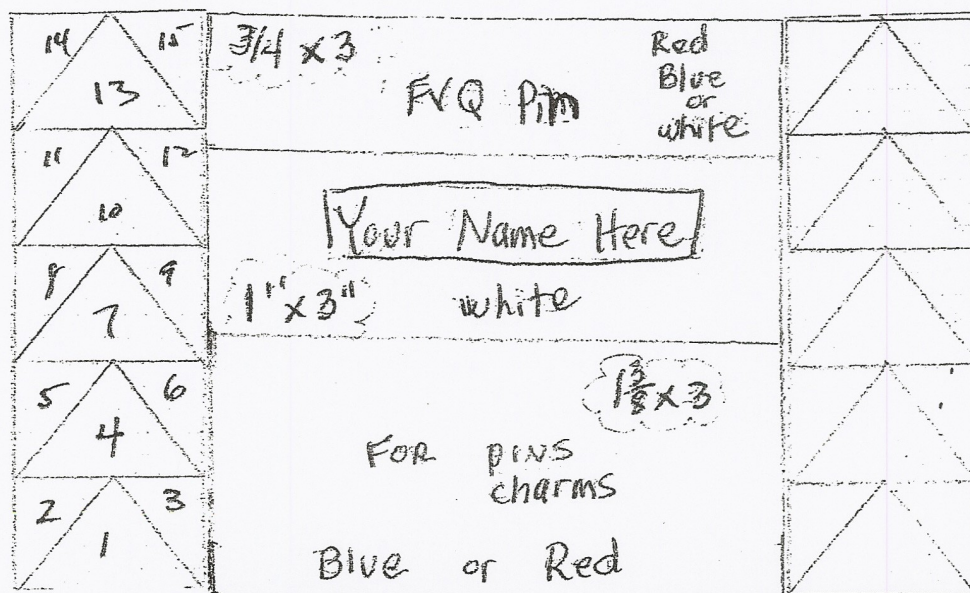 14 15
13
11 12
10
8 9
7
5 6
4
2 3
1
3/4 x 3
FVQ Pin
Red
Blue
or
white
Your Name Here
1" x 3"
white
1 3/8 x 3
FOR pins
charms
Blue or Red